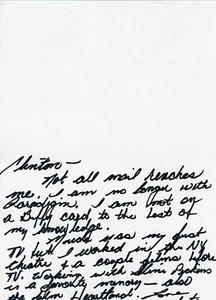 Clinton –
Not all mail reaches
me. I am no longer with
I am not on
a Buffy card, to the best of
my knowledge.
was my first
TV but I worked in the NY
theatre & a couple films
TV. Working with Slim Pickens
is a favorite memory – also
the film Heartland.